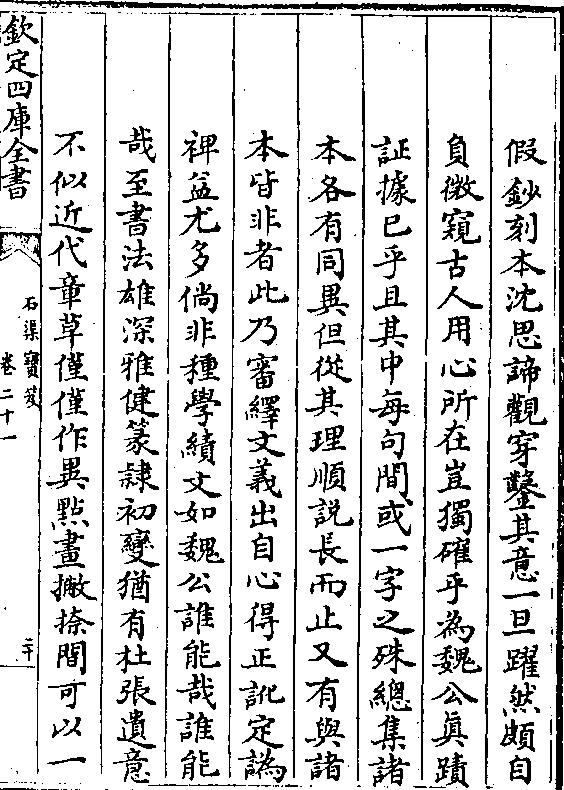 假鈔刻本沈思諦觀穿鑿其意一旦躍然頗自
負微窺古人用心所在豈獨確乎為魏公真蹟
証據已乎且其中每句間或一字之殊總集諸
本各有同異但從其理順説長而止又有與諸
本皆非者此乃審繹文義出自心得正訛定譌
裨益尤多倘非種學績文如魏公誰能哉誰能
哉至書法雄深雅健篆隷初變猶有杜張遺意
不似近代章草僅僅作異點畫撇捺間可以一
欽定四庫全書
石渠寶笈
卷二十一
二十